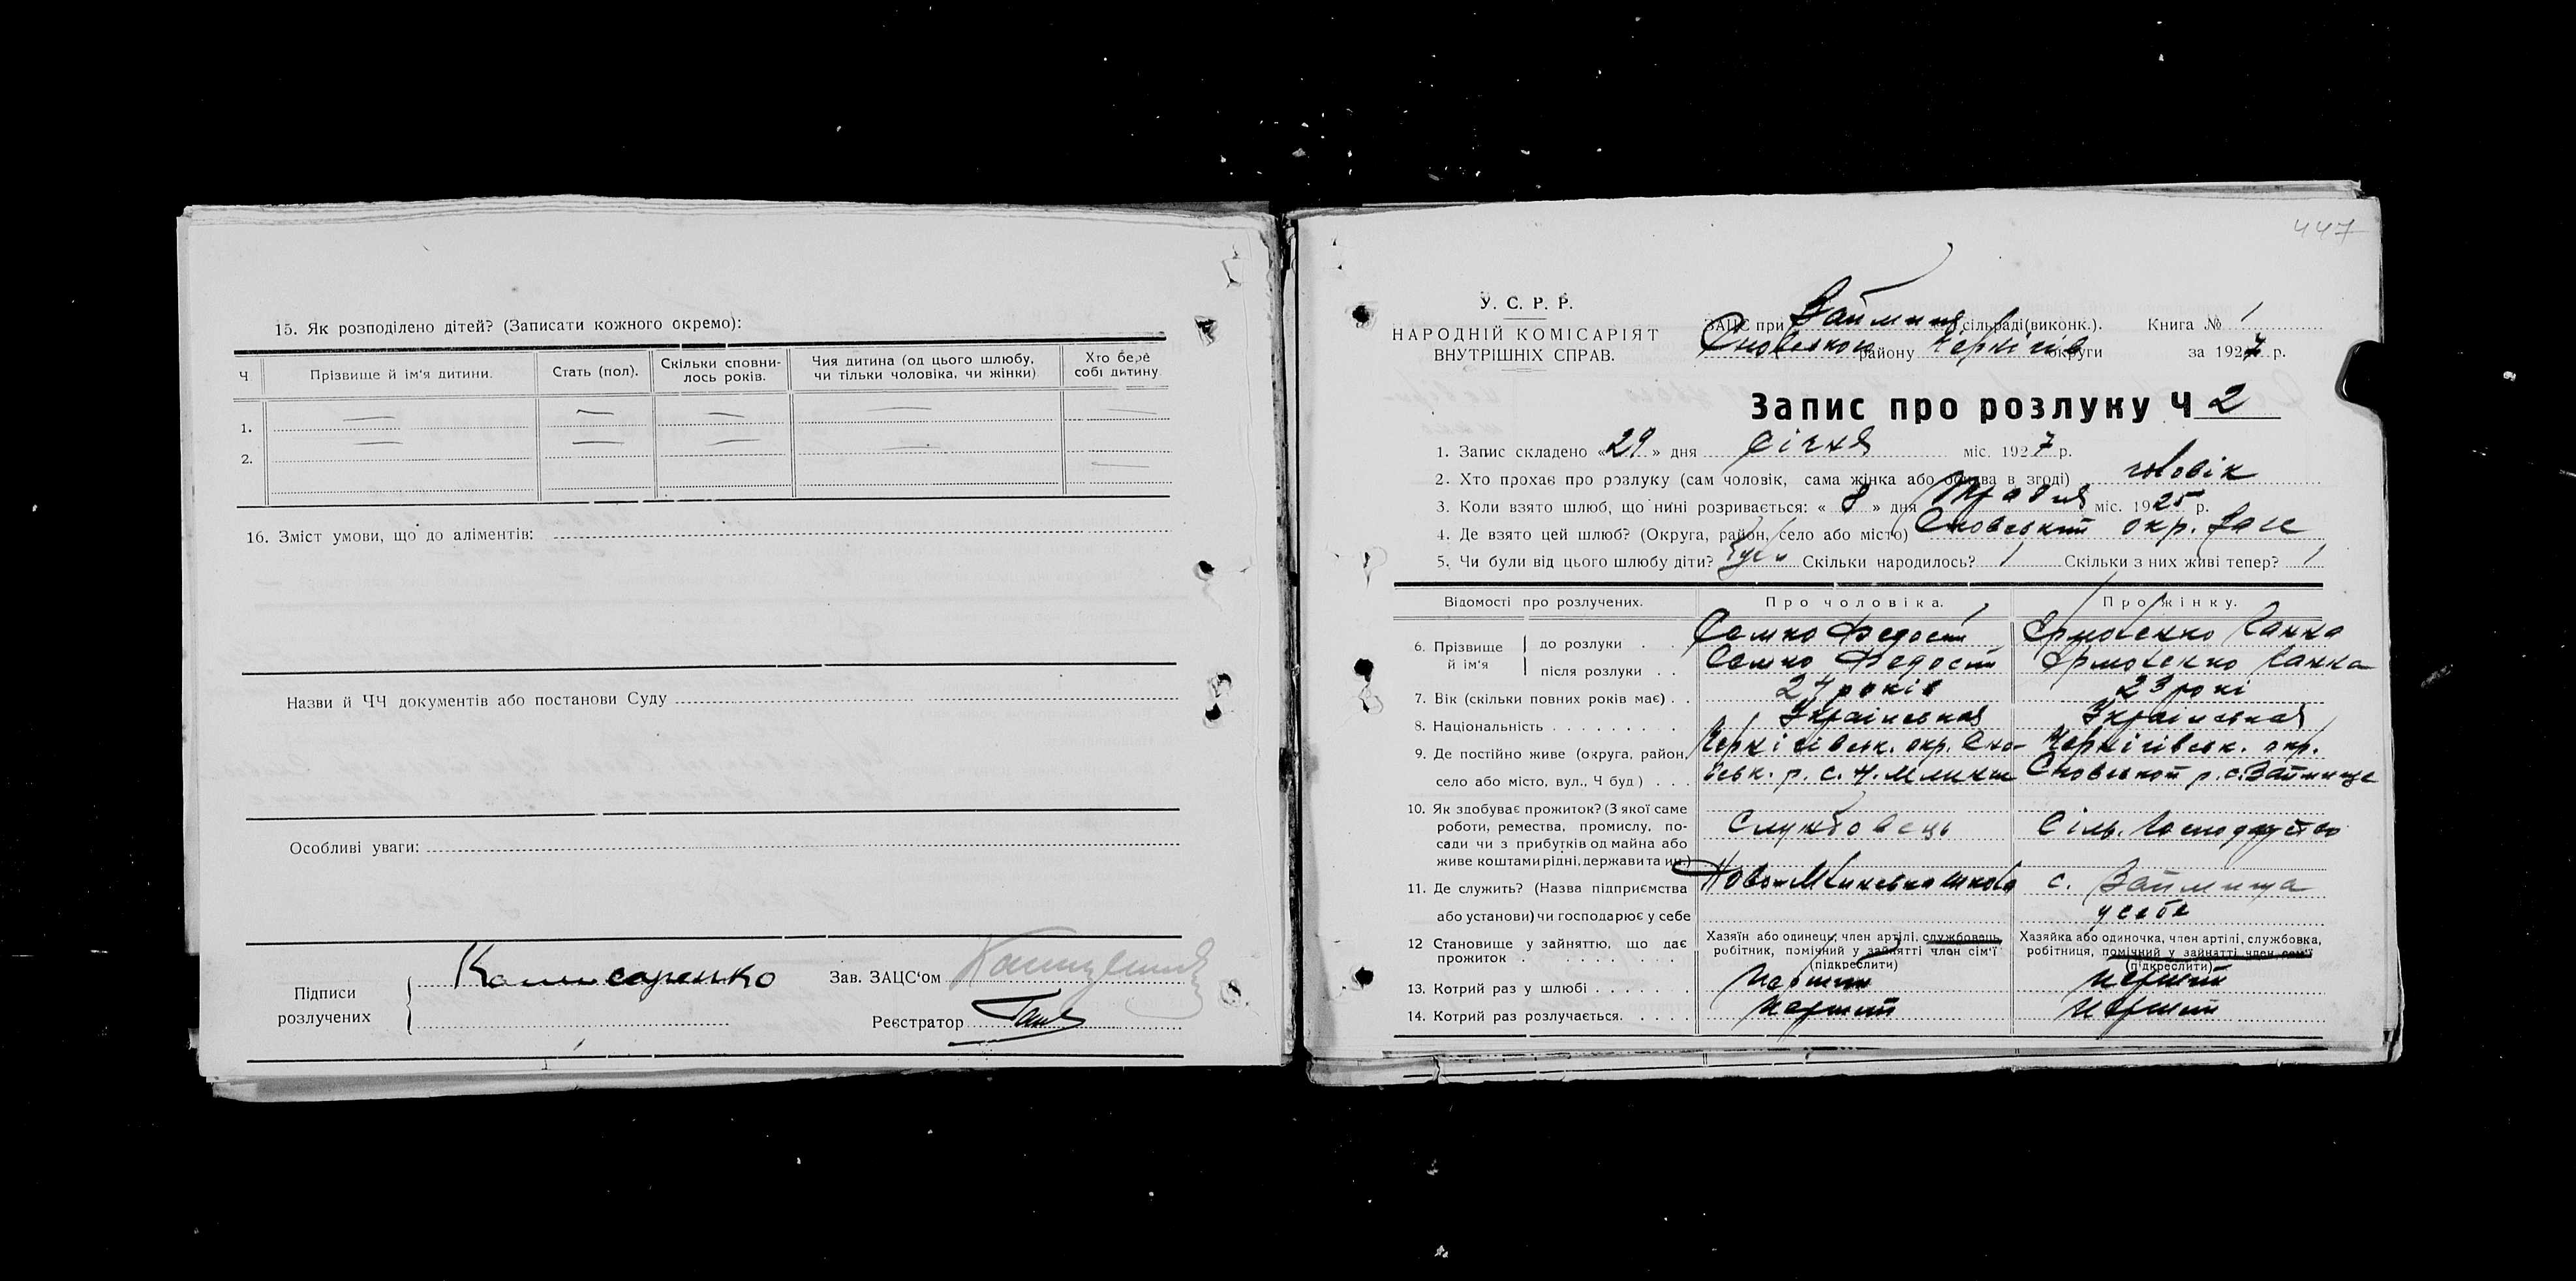 15. Як розподілено дітей? (Записати кожного окремо):
Ч Прізвище й ім'я дитини. Стать (пол). Скільки сповнилось років. Чия дитина (од цього шлюбу, чи тільки чоловіка, чи жінки) Хто бере собі дитину.
1.
2.
16. Зміст умови, що до аліментів:
Назви й ЧЧ документів або постанови Суду
Особливі уваги:
Підписи розлучених
Зав. ЗАЦС'ом
Реєстратор
447
У. С. Р. Р.
НАРОДНІЙ КОМІСАРІЯТ
ВНУТРІШНІХ СПРАВ.
ЗАЦС при Займищ сільраді(виконк.). Книга № 1
Сновського району Чернігів округи за 1927 р.
Запис про розлуку Ч 2
1. Запис складено «29» дня січня міс. 1927 р.
2. Хто прохає про розлуку (сам чоловік, сама жінка або обидва в згоді) чоловік
3. Коли взято шлюб, що нині розривається: «8» дня травня міс. 1925 р.
4. Де взято цей шлюб? (Округа, район, село або місто) Сновський окр. Загс
5. Чи були від цього шлюбу діти? Скільки народилось? 1 Скільки з них живі тепер? 1
Відомості про розлучених. Про чоловіка. Про жінку.
6. Прізвище й ім'я
до розлуки Федосій Ганна
після розлуки Федосій Ганна
7. Вік (скільки повних років має) 24 років 23 рокі
8. Національність Українська Українська
9. Де постійно живе (округа, район, Чернігівськ. окр. Сно- Чернігівськ. окр.
село або місто, вул., Ч буд) вськ. р. с. Н. Млини Сновської р. с. Займище
10. Як здобуває прожиток? (З якої саме
роботи, ремества, промислу, по- Службовець Сіль. Господарство
сади чи з прибутків од майна або
живе коштами рідні, держави та ин.)
11. Де служить? (Назва підприємства Ново-Млинська школа с. Займища
або установи) чи господарює у себе у себе
12 Становище у зайняттю, що дає Хазяїн або одинець, член артілі, службовець, Хазяйка або одиночка, член артілі, службовка,
прожиток робітник, помічний у зайнятті член сім'ї робітниця, помічний у зайнятті член сім'ї
(підкреслити) (підкреслити)
13. Котрий раз у шлюбі перший перший
14. Котрий раз розлучається. перший перший